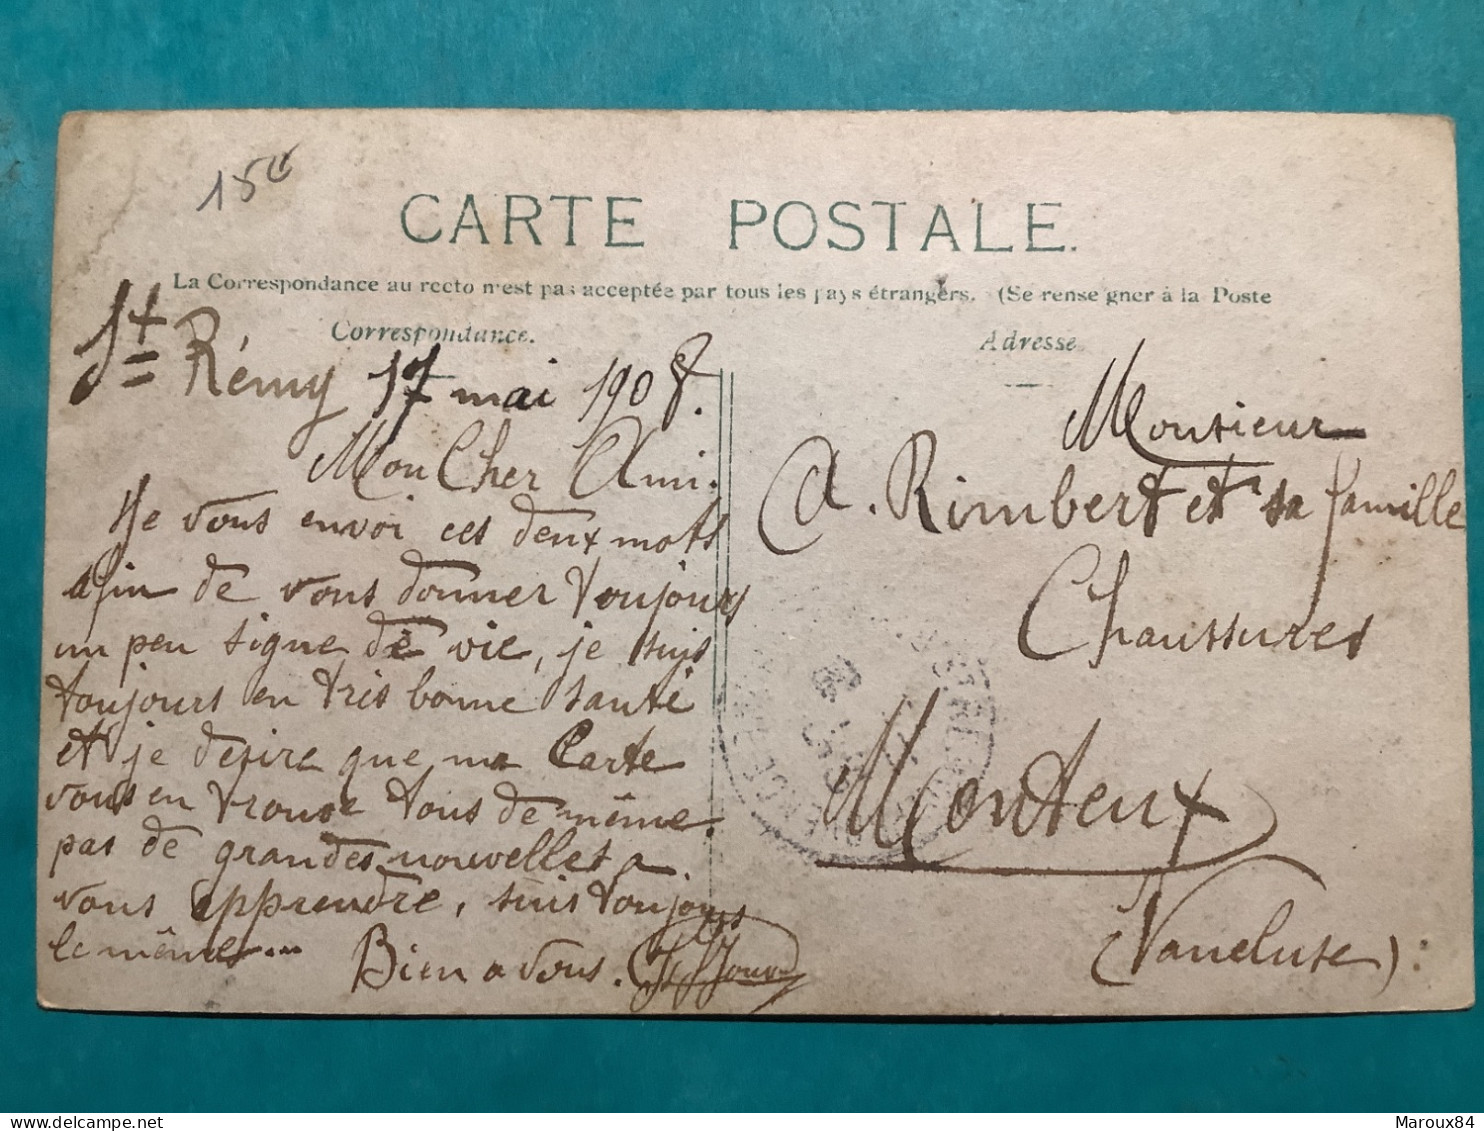 15
CARTE POSTALE.
La Correspondance au recto n'est pas acceptée par tous les pays étrangers. (Se renseigner à la Poste
Correspondance.
Adresse
St Rémy 17 mai 1908.
Mon Cher Ami.
Je vous envoi ces deux mots
afin de vous donner toujours
un peu signe de vie, je suis
toujours en très bonne santé
et je desire que ma Carte
vous en trouve tous de même.
pas de grandes nouvelles a
vous apprendre, suis toujours
le même...
Bien a vous.
Monsieur
A. Rimbert et sa famille
Chaussures
Monteux
(Vaucluse)
Maroux84